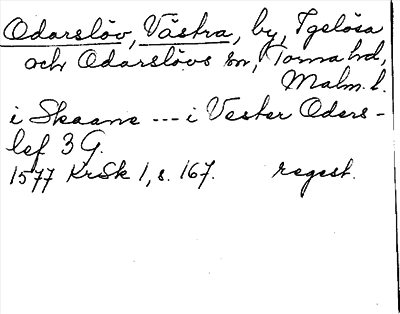 Odarslöv, Västra, by, Igelösa
och Odarslövs sn, Torna hd,
Malm. l.
i Skaane --- i Vester Oders-
lef 3 G.
1577 KrSk 1, s. 167. regest.